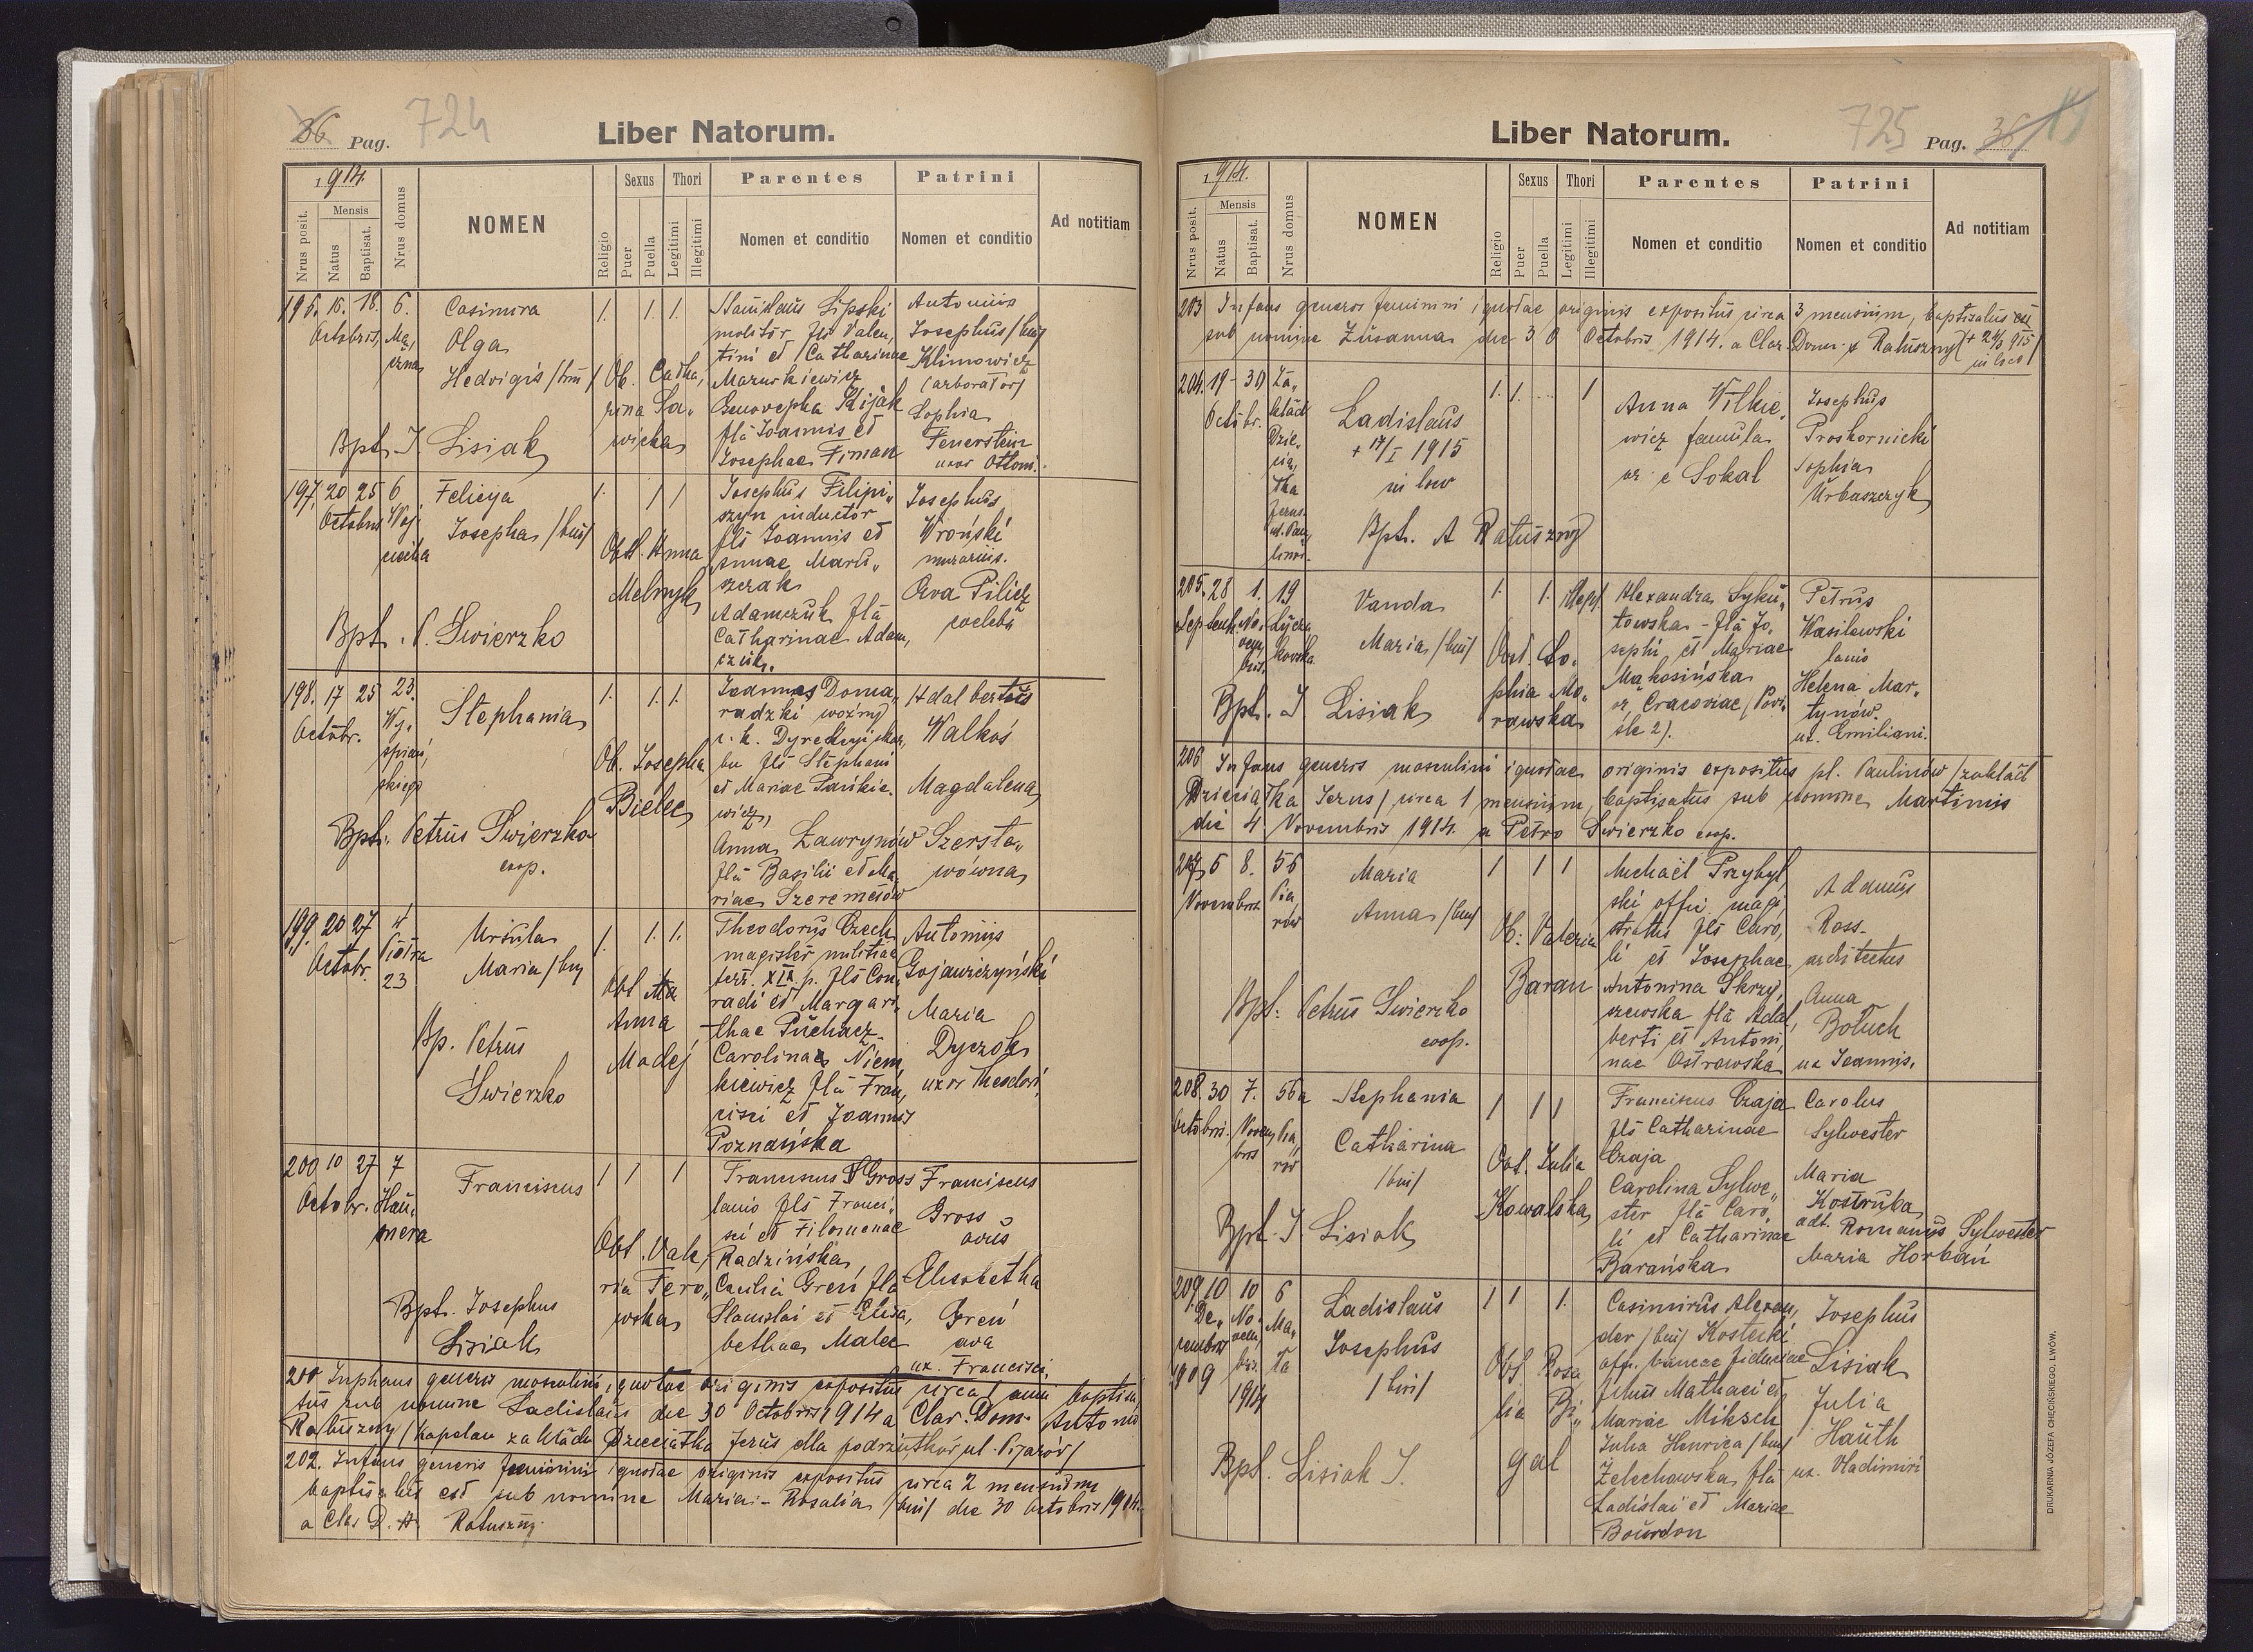 36 Pag. 724 Liber Natorum.
1914.
Nrus posit.
Mensis
Natus
Baptisat.
Nrus domus
NOMEN
Religio
Sexus
Puer
Puella
Thori
Legitimi
Illegitimi
Parentes
Nomen et conditio
Patrini
Nomen et conditio
Ad notitiam
196. 15. 18. 6.
Octobris,
Casimira
Olga
Hedvigis /trin/
1. 1. 1.
Ob. Catha,
rina Sa,
wicka
Stanislaus Lipski
molitor fls Valen,
tini et Catharinae
Mazurkiewicz
Genovepha Kijak
fla Joannis et
Josephae Firman
Antonius
Josephus /bin/
Klimowicz
/arborator/
Sophia
Feuerstein
uxor Ottoni.
Bpt. J. Lisiak
197. 20 25 6
Octobris
Felicya
Josepha /bin/
1. 1 1
Obst. Anna
Melnyk
Josephus Filipi,,
szyn inductor
fls Joannis et
Annae Maru,,
szczak
Adamczuk fla
Catharinae Adam,
czuk.
Josephus
Wroński
murarius.
Eva Pilicz
coelebs
Bpt. P. Swierzko
198. 17 25 23.
Octobr.
Wy,
spiań,
skiego
Stephania
1. 1. 1.
Ob. Josepha
Bielec
Joannes Doma,,
radzki woźny
c. k. Dyrekcyi skar,
bu fls Stephani
et Mariae Pańkie.
wicz,
Anna Ławrynów
fla Basilii et Ma,
riae Szeremetów
Adalbertus
Walkoś
Magdalena
Szerste,,
wówna
Bpt. Petrus Swierzko
coop.
199. 20 27 4
Octobr. Piotra
23
Ursula
Maria /bin/
1. 1. 1.
Obst.
Anna
Madej
Theodorus Czech
magister militiae
terr. XIX p. fls Con,
radi et Margari,
thae Puchacz
Carolina Niem,
kiewicz fla Fran,
cisci et Joannis
Poznańska
Antonius
Gojawiczyński
Maria
Dyczok
uxor Theodori,
Bp. Petrus
Swierzko
200. 10 27 7
Octobr. Hau,
snera
Franciscus
1 1 1
Obst. Vale,
ria Tero,,
wska
Franciscus Gross
lanio fls Franci,
sci et Filomenae
Radzińska,
Cacilia Greń fla
Stanislai et Elisa,
bethae Malec
Franciscus
Gross
avus
Elisabetha
Greń
ava
ux. Francisci,
Bpt. Josephus
Lisiak
200. Inphans generis masculini, ignotae originis expositus circa 1 ann baptisa,
tus sub nomine Ladislaus die 30 Octobris 1914 a Clar. Dom. Antonio
Ratuszny /kapelan zakładu Dzieciątka Jezus dla podrzutków ul. Pijarów/
202. Infans generis feminini ignotae originis expositus circa 2 mensium
baptisatus est sub nomine Maria-Rosalia /bin/ die 30 octobris 1914.
a Clar. D. A Ratuszny.
Liber Natorum. 725 Pag. 36
1914.
Nrus posit.
Mensis
Natus
Baptisat.
Nrus domus
NOMEN
Religio
Sexus
Puer
Puella
Thori
Legitimi
Illegitimi
Parentes
Nomen et conditio
Patrini
Nomen et conditio
Ad notitiam
203 Infans generis feminini ignotae originis expositus circa 3 mensium, baptisatus est
sub nomine Zusanna die 30 Octobris 1914. a Clar. Dom. A Ratuszny
in loco/
204. 19 - 30 Za,
Octobr. kład
Dzie,
cią,
tka
Jezus
ul. Pau,
linów.
Ladislaus
+ 17/I 1915
in loco
1. 1. 1
Anna Wilkie,
wicz famula
or. e Sokal
Josephus
Proskornicki
Sophia
Urbaszczyk
Bpt. A Ratuszny
205. 28 1. 19
Septemb. No,
vem,
bris
Łycza
kowska
Vanda
Maria /bin/
1. 1. illegi.
Obst. So,
phia Mo,
rawska
Alexandra Syku,,
towska - fla Jo,
sephi et Mariae
Makosińska
or. Cracoviae /Powi,
śle 2/.
Petrus
Wasilewski
lanio
Helena Mar,
tynów.
ux. Emiliani.
Bpt. J Lisiak
206 Infans generis masculini ignotae originis expositus pl. Paulinów /zakład
Dzieciątka Jezus/ circa 1 mensium, baptisatus sub nomine Martinus
die 4. Novembris 1914. a Petro Swierzko coop.
207. 5 8. 56
Novembris Pia,
rów
Maria
Anna /bin/
1 1 1
Ob: Valeria
Baran
Michaël Przybyl,
ski offic. magi,
stratus fls Caro,
li et Josephae
Antonina Skrzy,
szewska fla Adal,
berti et Antoni,
nae Ostrowska
Adamus
Ross.
architectus
Anna
Botuch
ux Joannis.
Bpt: Petrus Swierzko
coop.
208. 30 7. 56a
Octobris. Novem
bris
Pia,
rów
Stephania
Catharina
/bin/
1 1 1
Obst. Julia
Kowalska
Franciscus Czaja
fls Catharinae
Czaja
Carolina Sylwe,,
ster fla Caro,
li et Catharinae
Barańska
Carolus
Sylwester
Maria
Kostruba
adt. Romanus Sylwester
Maria Horbań
Bpt. J. Lisiak
209. 10 10 6
De,,
cembris
1909
No,
vem,
bris
1914
Ma,
ła
Ladislaus
Josephus
/bin/
1 1 1.
Obs. Rosa
lia Bi,,
gal
Casimirus Alexan,
der /bin/ Kostecki
off. bancae fiduciae
filius Mathaei et
Mariae Miksch
Julia Henrica /bin/
Żelechowska fla
Ladislai et Mariae
Bourdon
Josephus
Lisiak
Julia
Hauth
ux. Vladimiri
Bpt. Lisiak J.
DRUKARNIA JÓZEFA CHĘCIŃSKIEGO, LWÓW.